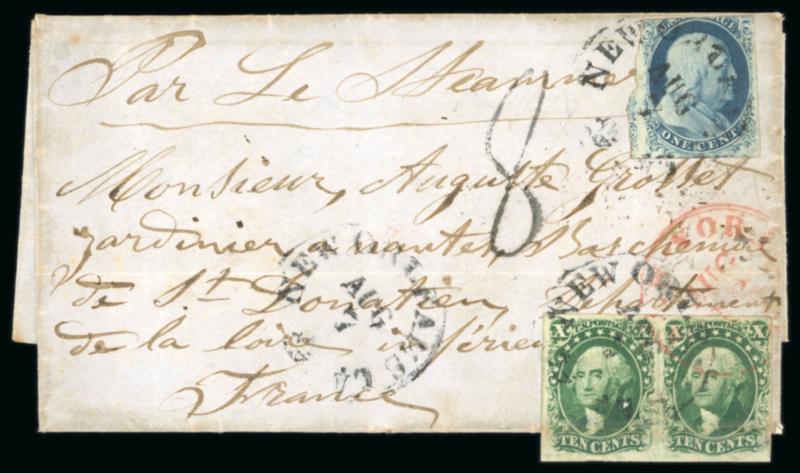 Par Le Steammer
8
Monsieur, Auguste Grosset
jardinier, a nantes, Bas chemin
de St Donatien, Département
de la loire inférieu
France
NEW ORLEANS LA
AUG
NEW OR
AUG
ONE CENT
NEW OR
X U.S. POSTAGE X
TEN CENTS
X U.S. POSTAGE X
TEN CENTS